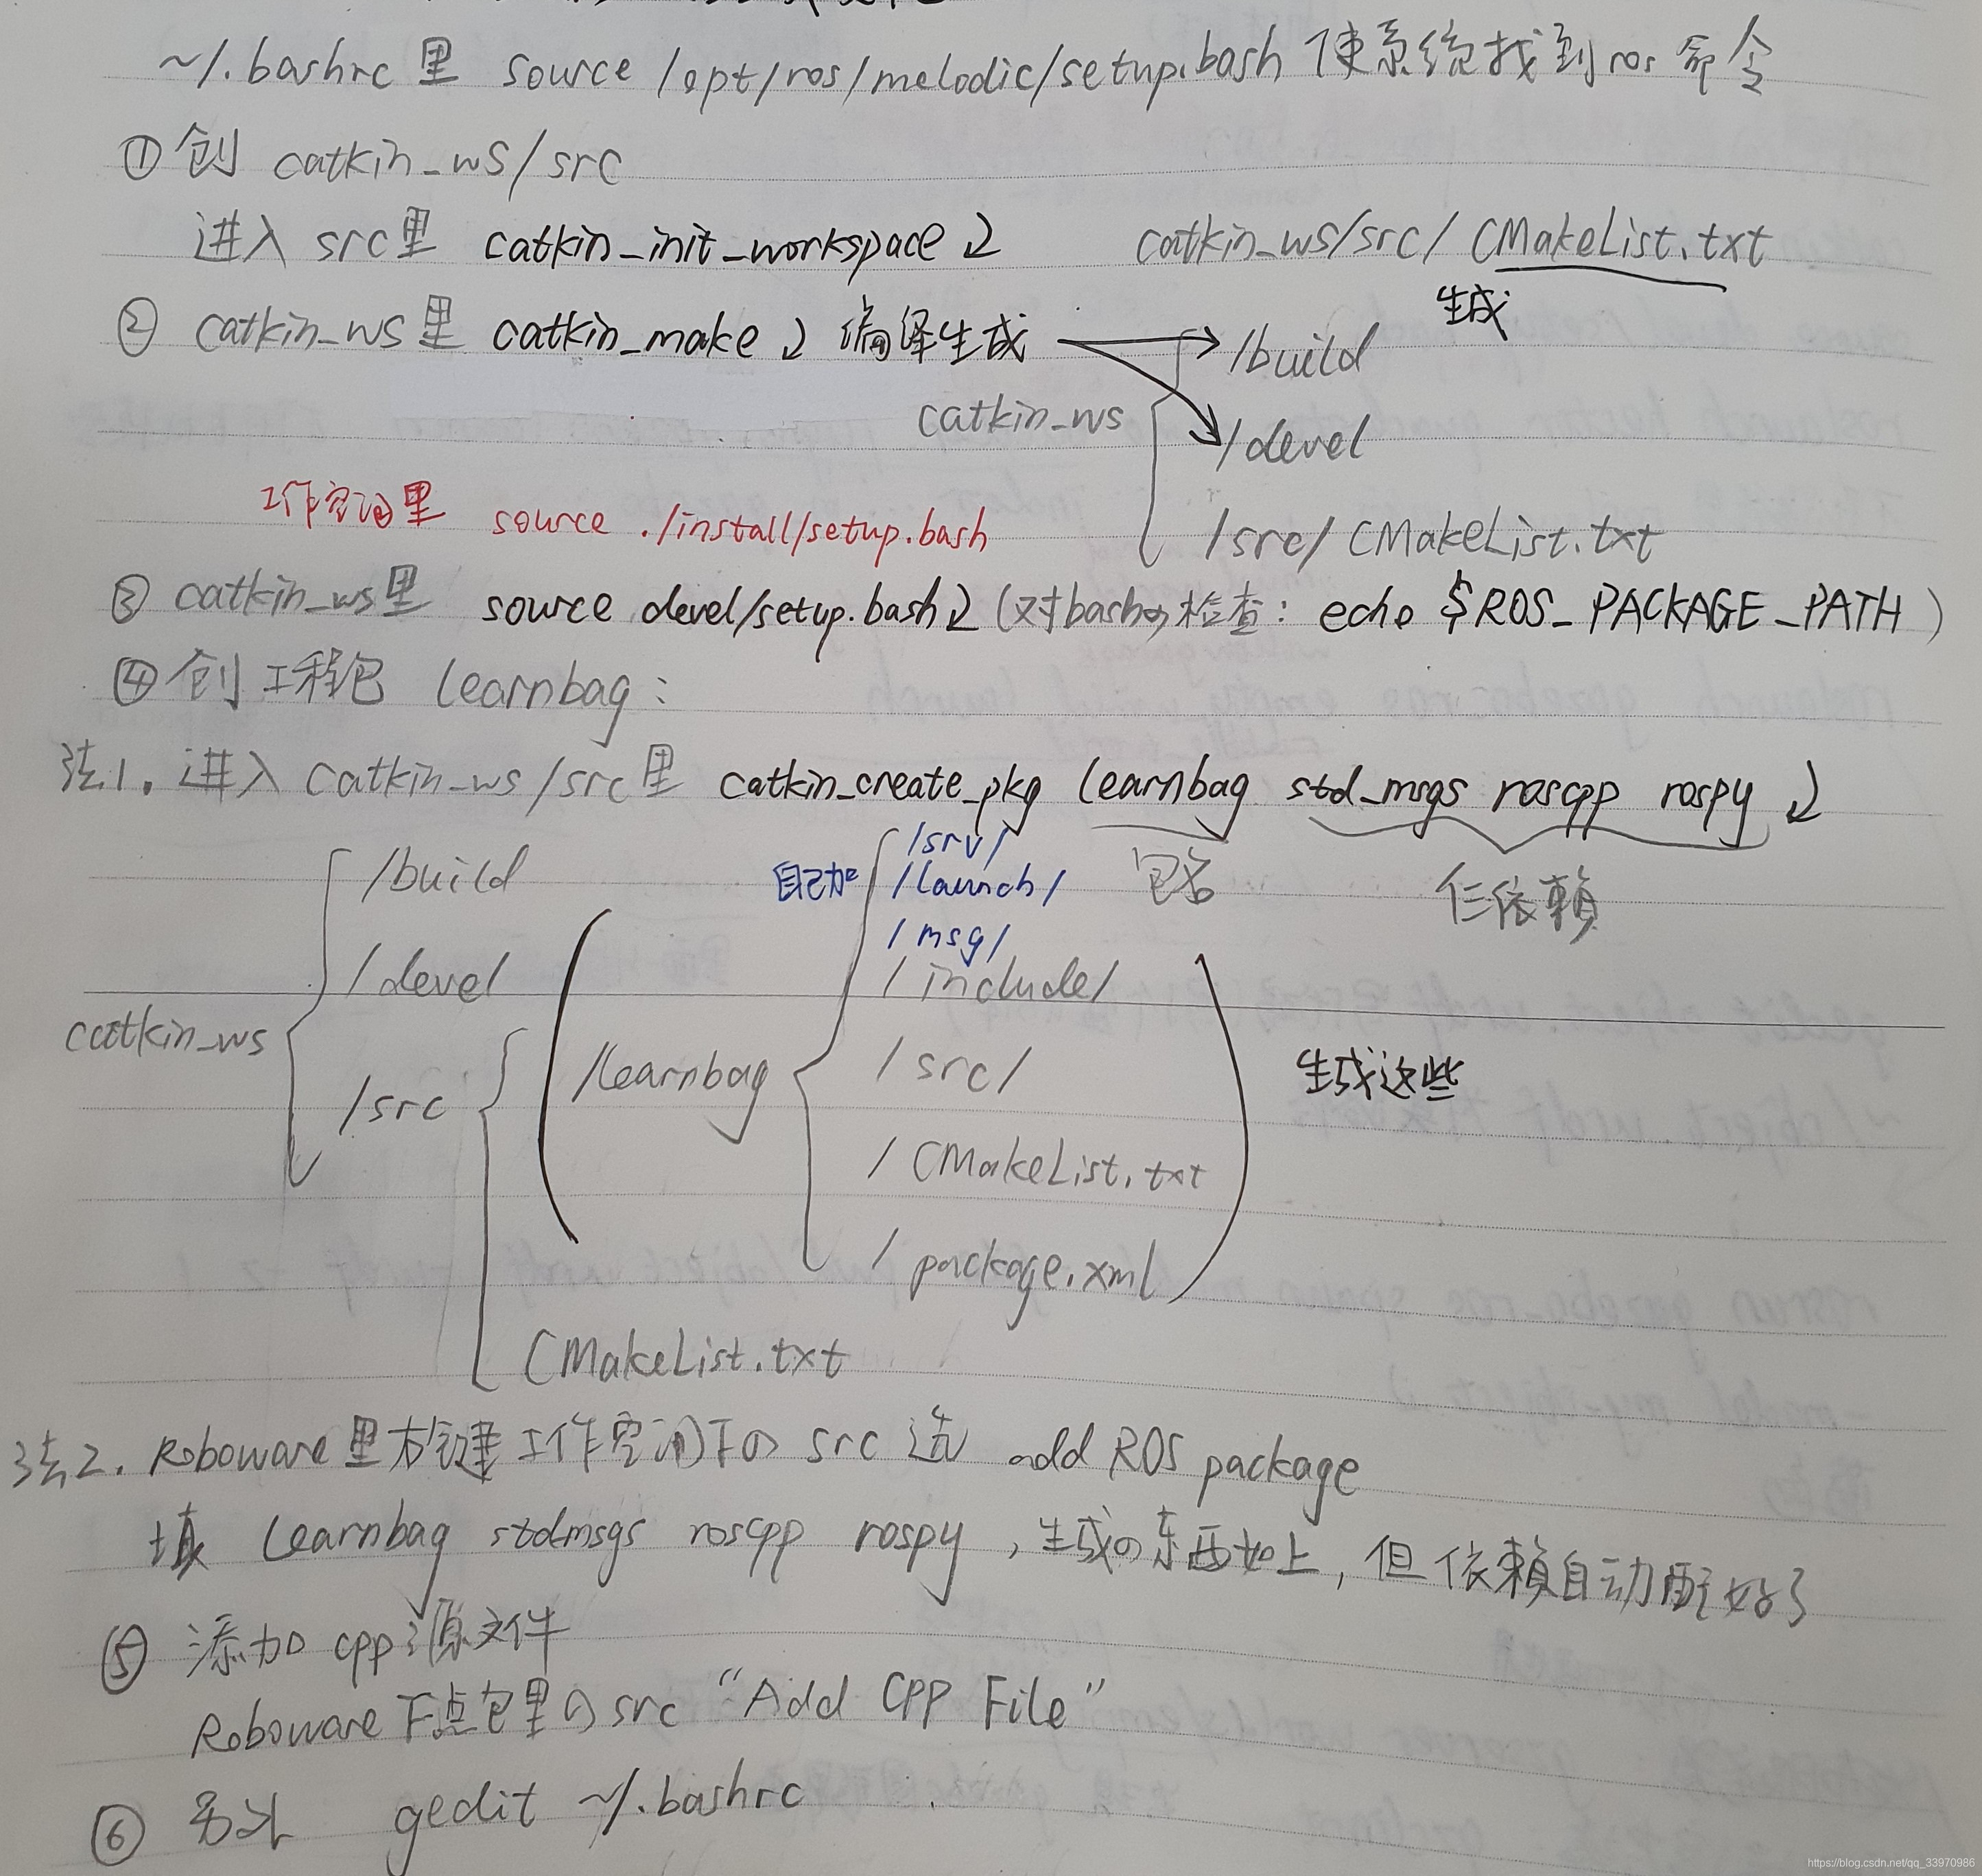 ~/.bashrc里 source /opt/ros/melodic/setup.bash 使系统找到ros 命令
① 创 catkin_ws/src
进入 src里 catkin_init_workspace ↲ catkin_ws/src/ CMakeList.txt
生成
② catkin_ws里 catkin_make ↲ 编译生成 → /build
catkin_ws
/devel
工作空间里 source ./install/setup.bash
/src/ CMakeList.txt
③ catkin_ws里 source devel/setup.bash ↲ (对bashの检查: echo $ROS_PACKAGE_PATH)
④ 创工程包 learnbag:
法1. 进入 catkin_ws/src里 catkin_create_pkg learnbag std_msgs roscpp rospy ↲
包名
仨依赖
自己加
/srv/
/launch/
/msg/
/build
/devel
/include/
catkin_ws
/src
/learnbag
/src/
生成这些
/CMakeList.txt
/package.xml
CMakeList.txt
法2. Roboware里右键工作空间下の src 选 add ROS package
填 learnbag stdmsgs roscpp rospy, 生成の东西如上, 但依赖自动配好了
⑤ 添加cpp源文件
Roboware下点包里の src "Add CPP File"
⑥ 另外 gedit ~/.bashrc
https://blog.csdn.net/qq_33970986